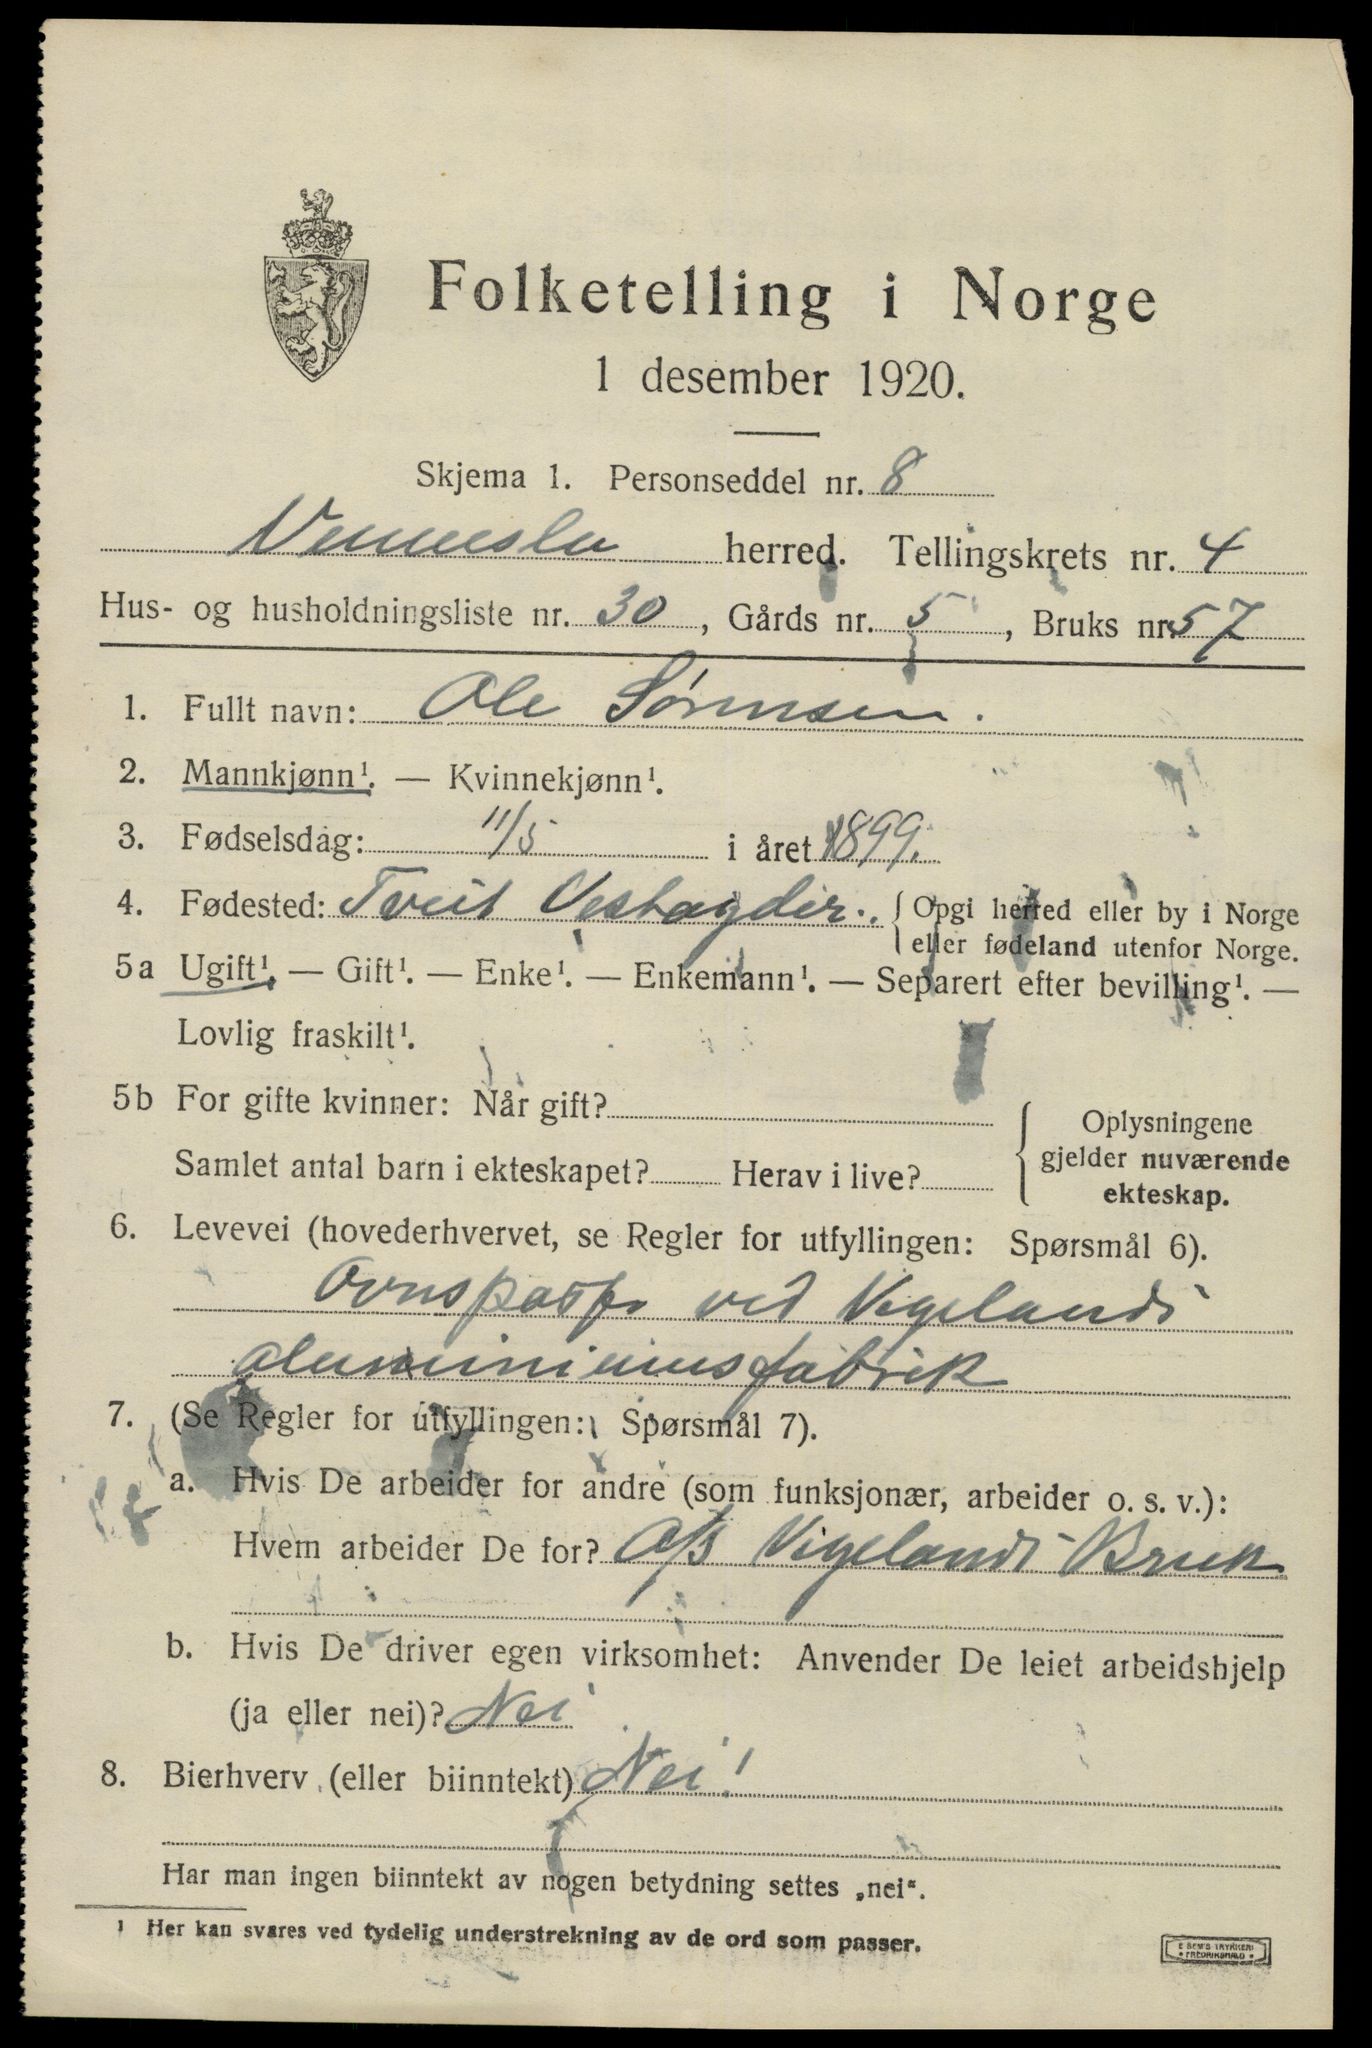 Folketelling i Norge
1 desember 1920.
Skjema 1. Personseddel nr. 8
Vennesla herred. Tellingskrets nr. 4
Hus- og husholdningsliste nr. 30, Gårds nr. 5, Bruks nr. 57
1. Fullt navn: Ole Sørensen.
2. Mannkjønn¹. — Kvinnekjønn¹.
3. Fødselsdag: 11/5 i året 1899.
4. Fødested: Tveit Vestagder. { Opgi herred eller by i Norge
eller fødeland utenfor Norge.
5a Ugift¹. — Gift¹. — Enke¹. — Enkemann¹. — Separert efter bevilling¹. —
Lovlig fraskilt¹.
5b For gifte kvinner: Når gift?
Samlet antal barn i ekteskapet? Herav i live?
Oplysningene
gjelder nuværende
ekteskap.
6. Levevei (hovederhvervet, se Regler for utfyllingen: Spørsmål 6).
Ovnspass ved Vigelands
aluminiumsfabrik
7. (Se Regler for utfyllingen: Spørsmål 7).
a. Hvis De arbeider for andre (som funksjonær, arbeider o. s. v.):
Hvem arbeider De for? A/S Vigelands Bruk
b. Hvis De driver egen virksomhet: Anvender De leiet arbeidshjelp
(ja eller nei)? Nei
8. Bierhverv (eller biinntekt) Nei!
Har man ingen biinntekt av nogen betydning settes „nei“.
¹ Her kan svares ved tydelig understrekning av de ord som passer.
E SEM'S TRYKKERI
FREDRIKSHALD